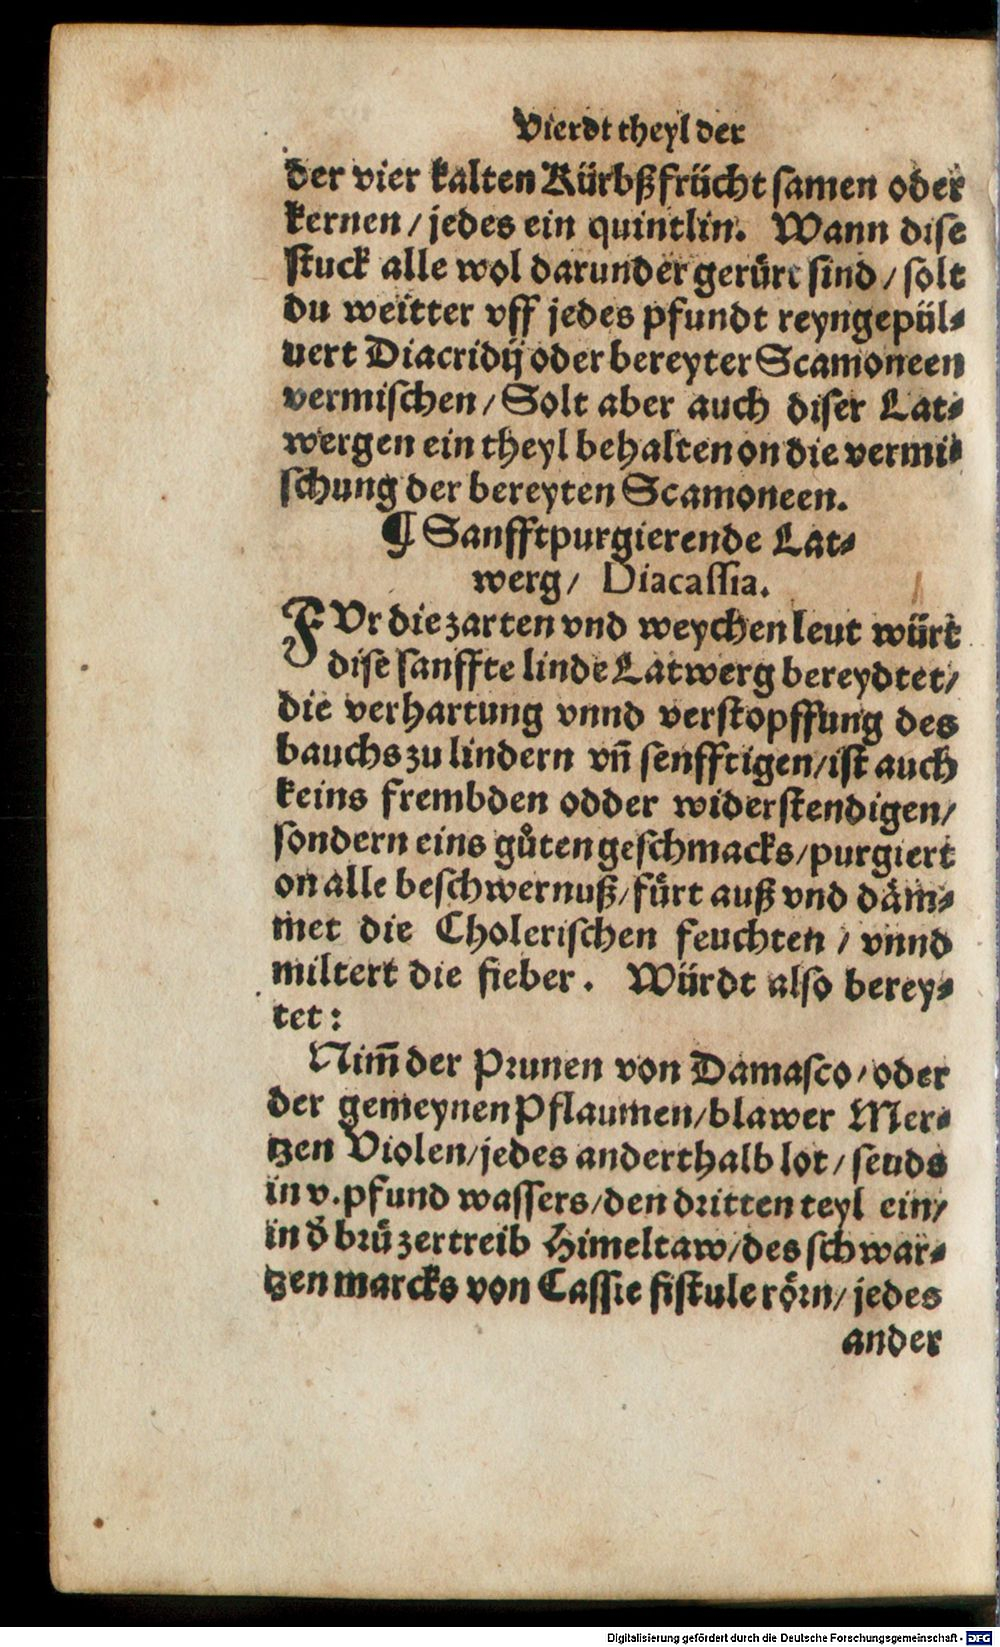 Vierdt theyl der
der vier kalten Kürbßfrücht samen oder
kernen / jedes ein quintlin. Wann dise
stuck alle wol darunder gerürt sind / solt
du weitter vff jedes pfundt reyngepül⸗
uert Diacridij oder bereyter Scamoneen
vermischen / Solt aber auch diser Lat⸗
wergen ein theyl behalten on die vermi⸗
schung der bereyten Scamoneen.
¶ Sanfftpurgierende Lat⸗
werg / Diacassia.
FVr die zarten vnd weychen leut würt
dise sanffte linde Latwerg bereydtet /
die verhartung vnnd verstopffung des
bauchs zu lindern vñ senfftigen / ist auch
keins frembden odder widerstendigen /
sondern eins gůten geschmacks / purgiert
on alle beschwernuß / fürt auß vnd däm⸗
met die Cholerischen feuchten / vnnd
miltert die fieber. Würdt also berey⸗
tet :
Nim̃ der Prunen von Damasco / oder
der gemeynen Pflaumen / blawer Mer⸗
tzen Violen / jedes anderthalb lot / seuds
in v. pfund wassers / den dritten teyl ein /
in d̕ brü zertreib Himeltaw / des schwar⸗
tzen marcks von Cassie fistule rörn / jedes
ander
Digitalisierung gefördert durch die Deutsche Forschungsgemeinschaft - DFG